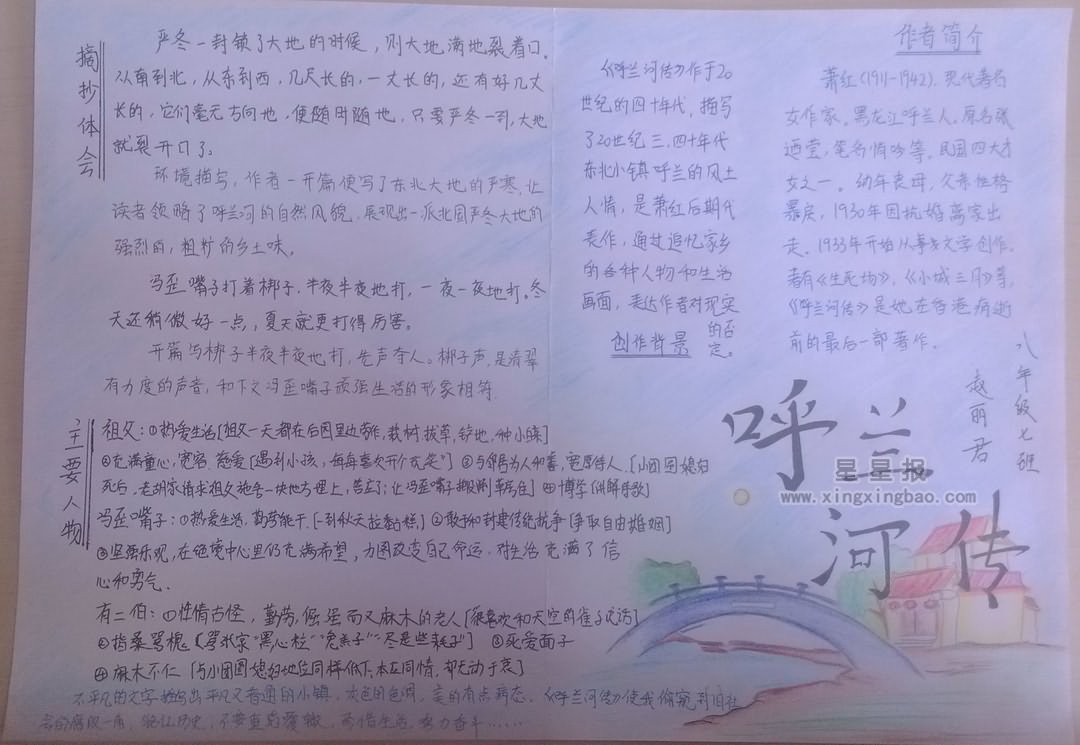 摘抄体会
严冬一封锁了大地的时候，则大地满地裂着口。
从南到北，从东到西，几尺长的，一丈长的，还有好几丈
长的，它们毫无方向地，便随时随地，只要严冬一到，大地
就裂开口了。
环境描写，作者一开篇便写了东北大地的严寒，让
读者领略了呼兰河的自然风貌，展现出一派北国严冬大地的
强烈的，粗犷的乡土味。
冯歪嘴子打着梆子，半夜半夜地打，一夜一夜地打。冬
天还稍微好一点，夏天就更打得厉害。
开篇写梆子半夜半夜地打，先声夺人。梆子声，是清翠
有力度的声音，和下文冯歪嘴子顽强生活的形象相符
主要人物
祖父：①热爱生活[祖父一天都在后园里边劳作，栽树拔草，铲地，种小菜]
②充满童心，宽容，慈爱[遇到小孩，每每喜欢开个玩笑]③与邻居为人和善，宽厚待人。[小团圆媳妇
死后，老胡家请求祖父施舍一块地方埋上，答应了；让冯歪嘴子搬到草房住]④博学[讲解诗歌]
冯歪嘴子：①热爱生活，勤劳能干，[一到秋天拉黏糕]②敢于和封建传统抗争[争取自由婚姻]
③坚强乐观，在绝境中心里仍充满希望，力图改变自己命运，对生活充满了信
心和勇气.
有二伯：①性情古怪，勤劳，倔强而又麻木的老人[很喜欢和天空的雀子说话]
②指桑骂槐（骂我家"黑心粒""兔羔子""尽是些耗子"]③死爱面子
④麻木不仁[与小团圆媳妇地位同样低下，本应同情，却无动于衷]
不平凡的文字描写出平凡又普通的小镇，灰色的色调，美的有点病态，《呼兰河传》使我偷窥到旧社
会的腐败一角，努力奋斗……
《呼兰河传》作于20
世纪的四十年代，描写
了20世纪三、四十年代
东北小镇呼兰的风土
人情，是萧红后期代
表作，通过追忆家乡
的各种人物和生活
画面，表达作者对现实
的否定。
创作背景
作者简介
萧红(1911-1942)，现代著名
女作家。黑龙江呼兰人。原名张
迺莹，笔名悄吟等，民国四大才
女之一。幼年丧母，父亲性格
暴戾，1930年因抗婚离家出
走。1933年开始从事文学创作。
著有《生死场》，《小城三月》等，
《呼兰河传》是她在香港病逝
前的最后一部著作。
八年级七班
赵丽君
呼兰
河传
星星报
www.xingxingbao.com